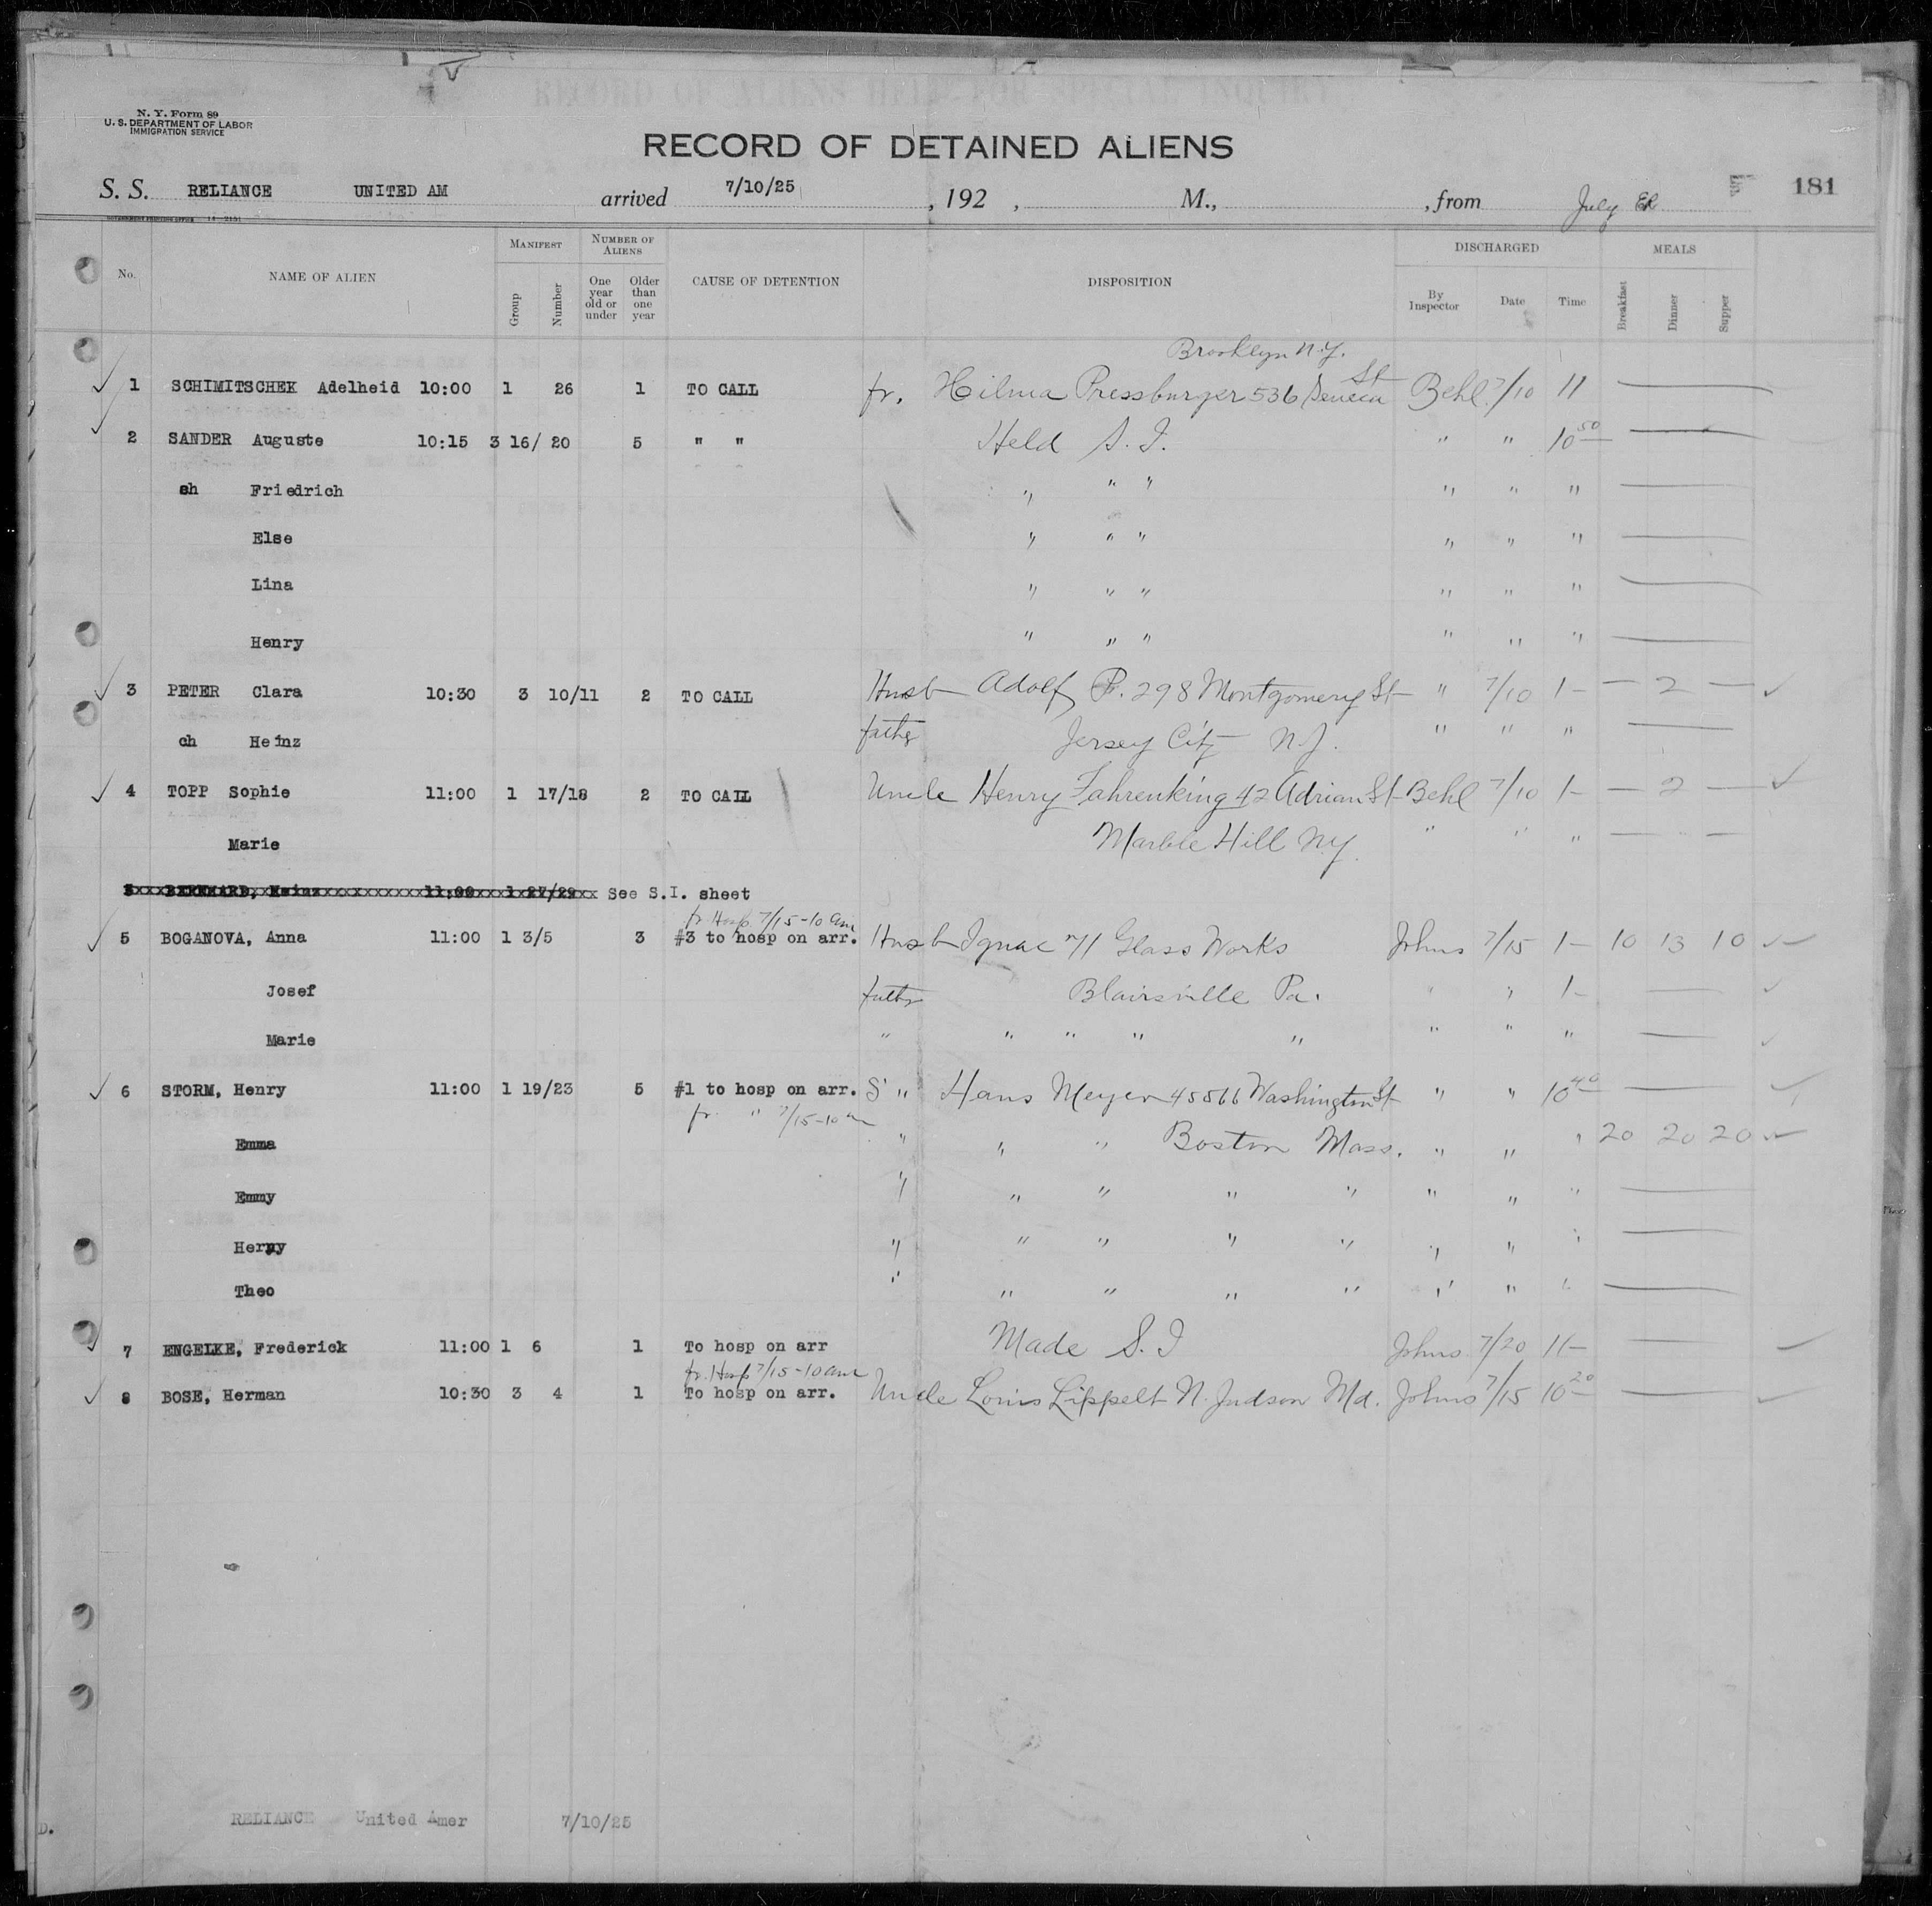 N. Y. Form 89
U. S. DEPARTMENT OF LABOR
IMMIGRATION SERVICE
RECORD OF DETAINED ALIENS
S. S. RELIANCE UNITED AM arrived 7/10/25, 192 , M., , from July 181
No. NAME OF ALIEN MANIFEST Group Number NUMBER OF ALIENS One year old or under Older than one year CAUSE OF DETENTION DISPOSITION DISCHARGED By Inspector Date Time MEALS Breakfast Dinner Supper
Brooklyn N.Y.
1 SCHIMITSCHEK Adelheid 10:00 1 26 1 TO CALL fr. Hilma Pressburger 536 Seneca St Behl 7/10 11
2 SANDER Auguste 10:15 3 16/ 20 5 " " Held S. I. " " 10 50
ch Friedrich " " " " " "
Else " " " " " "
Lina " " " " " "
Henry " " " " " "
3 PETER Clara 10:30 3 10/11 2 TO CALL Husb Adolf P. 298 Montgomery St " 7/10 1- — 2 —
ch Heinz father Jersey City N.J. " " "
4 TOPP Sophie 11:00 1 17/18 2 TO CALL Uncle Henry Fahrenking 42 Adrian St Behl 7/10 1- — 2 —
Marie Marble Hill NY " " "
5 BERNHARD, Heinz 11:00 1 27/29 See S.I. sheet
fr. Hosp 7/15-10 am
5 BOGANOVA, Anna 11:00 1 3/5 3 #3 to hosp on arr. Husb Ignac Glass Works Johns 7/15 1- 10 13 10
Josef father Blairsville Pa. " " 1-
Marie " " " " " " " "
6 STORM, Henry 11:00 1 19/23 5 #1 to hosp on arr. S " Hans Meyer 45566 Washington St " " 10 40
fr. " 7/15-10 am
Emma " " " Boston Mass. " " " 20 20 20
Emmy " " " " " " " "
Herny " " " " " " " "
Theo " " " " " " " "
7 ENGELKE, Frederick 11:00 1 6 1 To hosp on arr Made S. I Johns 7/20 11-
fr. Hosp 7/15-10 am
8 BOSE, Herman 10:30 3 4 1 To hosp on arr. Uncle Louis Lippelt N. Judson Md. Johns 7/15 10 20
RELIANCE United Amer 7/10/25